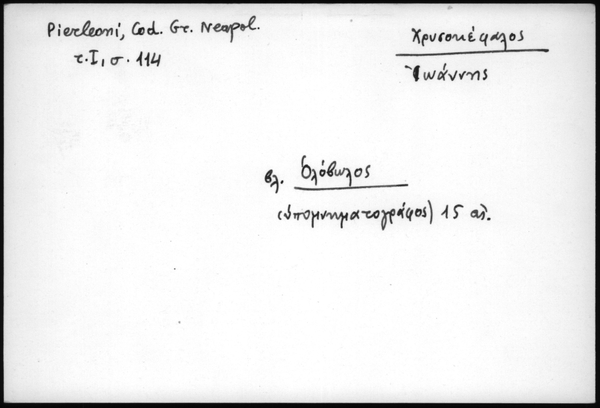 Pierleoni, Cod. Gr. Neapol.
τ. I, σ. 114
Χρυσοκέφαλος
Ἰωάννης
βλ. Ὁλόβωλος
(ὑπομνηματογράφος) 15 αἰ.